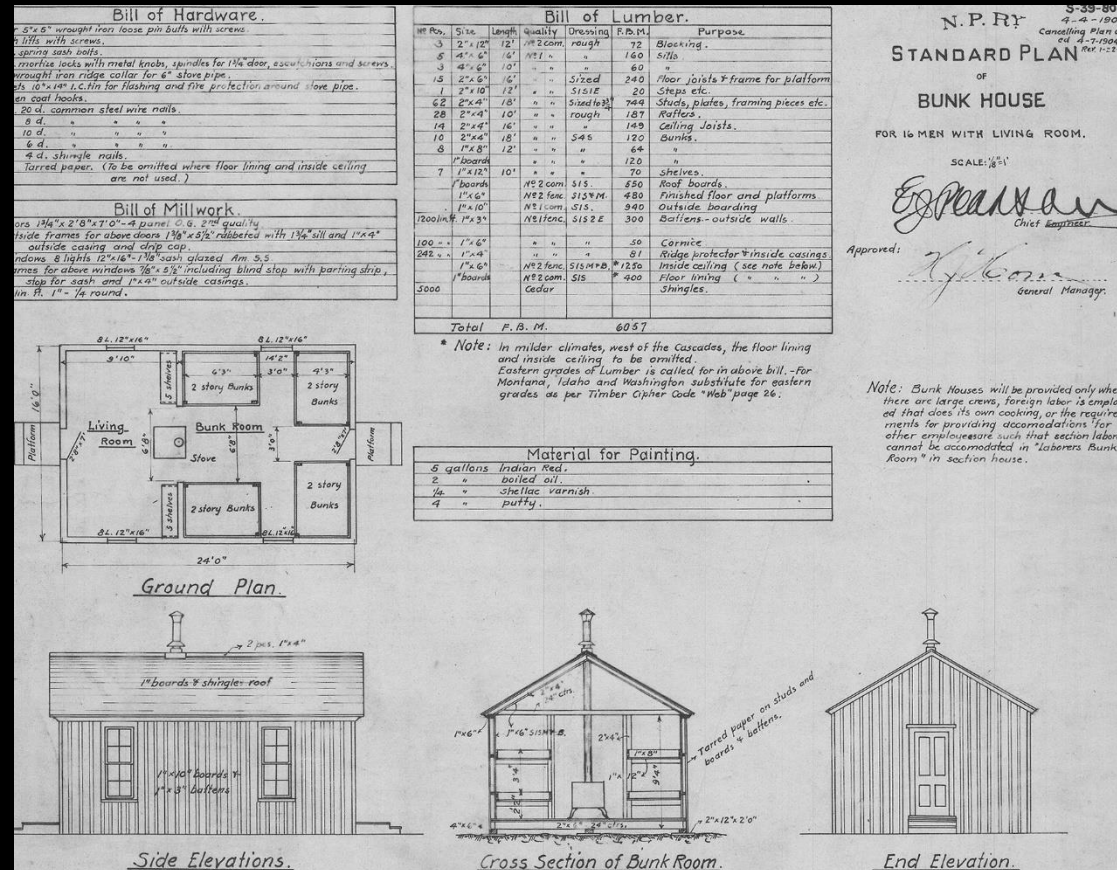 Bill of Hardware.
5"x5" wrought iron loose pin butts with screws.
lifts with screws.
spring sash bolts.
mortise locks with metal knobs, spindles for 1¾" door, escutchions and screws.
wrought iron ridge collar for 6" stove pipe.
10"x14" I.C. tin for flashing and fire protection around stove pipe.
coat hooks.
20 d. common steel wire nails.
8 d. " " " "
10 d. " " " "
6 d. " " " "
4 d. shingle nails.
Tarred paper. (To be omitted where floor lining and inside ceiling
are not used.)
Bill of Millwork.
1¾"x2'8"x7'0"-4 panel O.G. 2nd quality
frames for above doors 1⅜"x5½" rabbeted with 1¾" sill and 1"x4"
outside casing and drip cap.
8 lights 12"x16"-1⅜" sash glazed Am. S.S.
for above windows ⅞"x5½" including blind stop with parting strip,
stop for sash and 1"x4" outside casings.
lin. ft. 1" - ¼ round.
Bill of Lumber.
Nº Pcs. Size Length Quality Dressing F.B.M. Purpose
3 2"x12" 12' Nº2 com. rough 72 Blocking.
5 4"x6" 16' Nº1 " " 160 Sills
3 4"x6" 10' " " " 60 "
15 2"x6" 16' " " Sized 240 Floor joists & frame for platform
1 2"x10" 12' " " S1S1E 20 Steps etc.
62 2"x4" 18' " " Sized to 3¾" 744 Studs, plates, framing pieces etc.
28 2"x4" 10' " " rough 187 Rafters.
14 2"x4" 16' " " " 149 Ceiling Joists.
10 2"x4" 18' " " S4S 120 Bunks.
8 1"x8" 12' " " " 64 "
1" boards " " " 120 "
7 1"x12" 10' " " " 70 Shelves.
1" boards Nº2 com. S1S. 550 Roof boards.
1"x6" Nº2 fenc. S1S&M. 480 Finished floor and platforms
1"x10" Nº1 com. S1S. 940 Outside boarding
1200 lin.ft. 1"x3" Nº1 fenc. S1S2E 300 Battens - outside walls.
100 " " 1"x6" " " " 50 Cornice
242 " " 1"x4" " " " 81 Ridge protector & inside casings
1"x6" Nº2 fenc. S1SM&B. *1250 Inside ceiling (see note below)
1" boards Nº2 com. S1S *400 Floor lining ( " " " )
5000 Cedar Shingles.
Total F.B.M. 6057
* Note: In milder climates, west of the Cascades, the floor lining
and inside ceiling to be omitted.
Eastern grades of Lumber is called for in above bill. - For
Montana, Idaho and Washington substitute for eastern
grades as per Timber Cipher Code "Web" page 26.
Material for Painting.
5 gallons Indian Red.
2 " boiled oil.
¼ " shellac varnish.
4 " putty.
S-39-80
4-4-190
N. P. RY
Cancelling Plan
4-7-1904
Rev. 1-22
STANDARD PLAN
OF
BUNK HOUSE
FOR 16 MEN WITH LIVING ROOM.
SCALE: ⅛"=1'
EJ Pearson
Chief Engineer.
Approved:
General Manager.
Note: Bunk Houses will be provided only whe
there are large crews, foreign labor is emplo
ed that does its own cooking, or the require
ments for providing accomodations for
other employees are such that section labor
cannot be accomodated in "Laborers Bunk
Room" in section house.
8 L. 12"x16"
8 L. 12"x16"
9'10"
14'2"
6'3"
3'0"
4'3"
5 shelves
2 story Bunks
2 story
Bunks
16'0"
Platform
2'8"x7'
Living
Room
6'8"
Stove
Bunk Room
6'8"
3'0"
2'8"x7'
Platform
5 shelves
2 story Bunks
2 story
Bunks
8 L. 12"x16"
8 L. 12"x16"
24'0"
Ground Plan.
2 pcs. 1"x4"
1" boards & shingle roof
1"x10" boards &
1"x3" battens
Side Elevations.
2"x4"
24" ctrs.
1"x6"
1"x6" S1SM&B.
2"x4"
1"x8"
1"x12"
3'4"
2'2"
9'4"
Tarred paper on studs and
boards & battens.
4"x6"
2"x6" 24" ctrs.
2"x12"x2'0"
Cross Section of Bunk Room.
End Elevation.